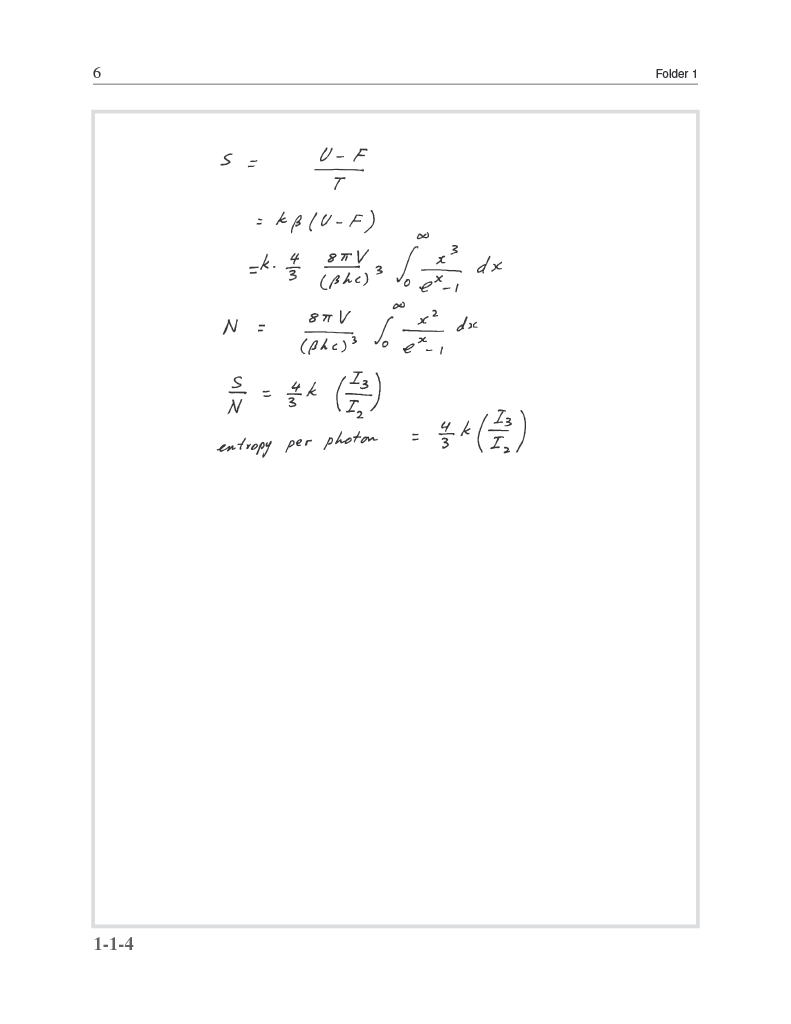 6 Folder 1
S = \frac{U - F}{T}
= kβ(U - F)
= k \cdot \frac{4}{3} \frac{8πV}{(βhc)^3} \int_0^∞ \frac{x^3}{e^x - 1} dx
N = \frac{8πV}{(βhc)^3} \int_0^∞ \frac{x^2}{e^x - 1} dx
\frac{S}{N} = \frac{4}{3} k \left(\frac{I_3}{I_2}\right)
entropy per photon = \frac{4}{3} k \left(\frac{I_3}{I_2}\right)
1-1-4